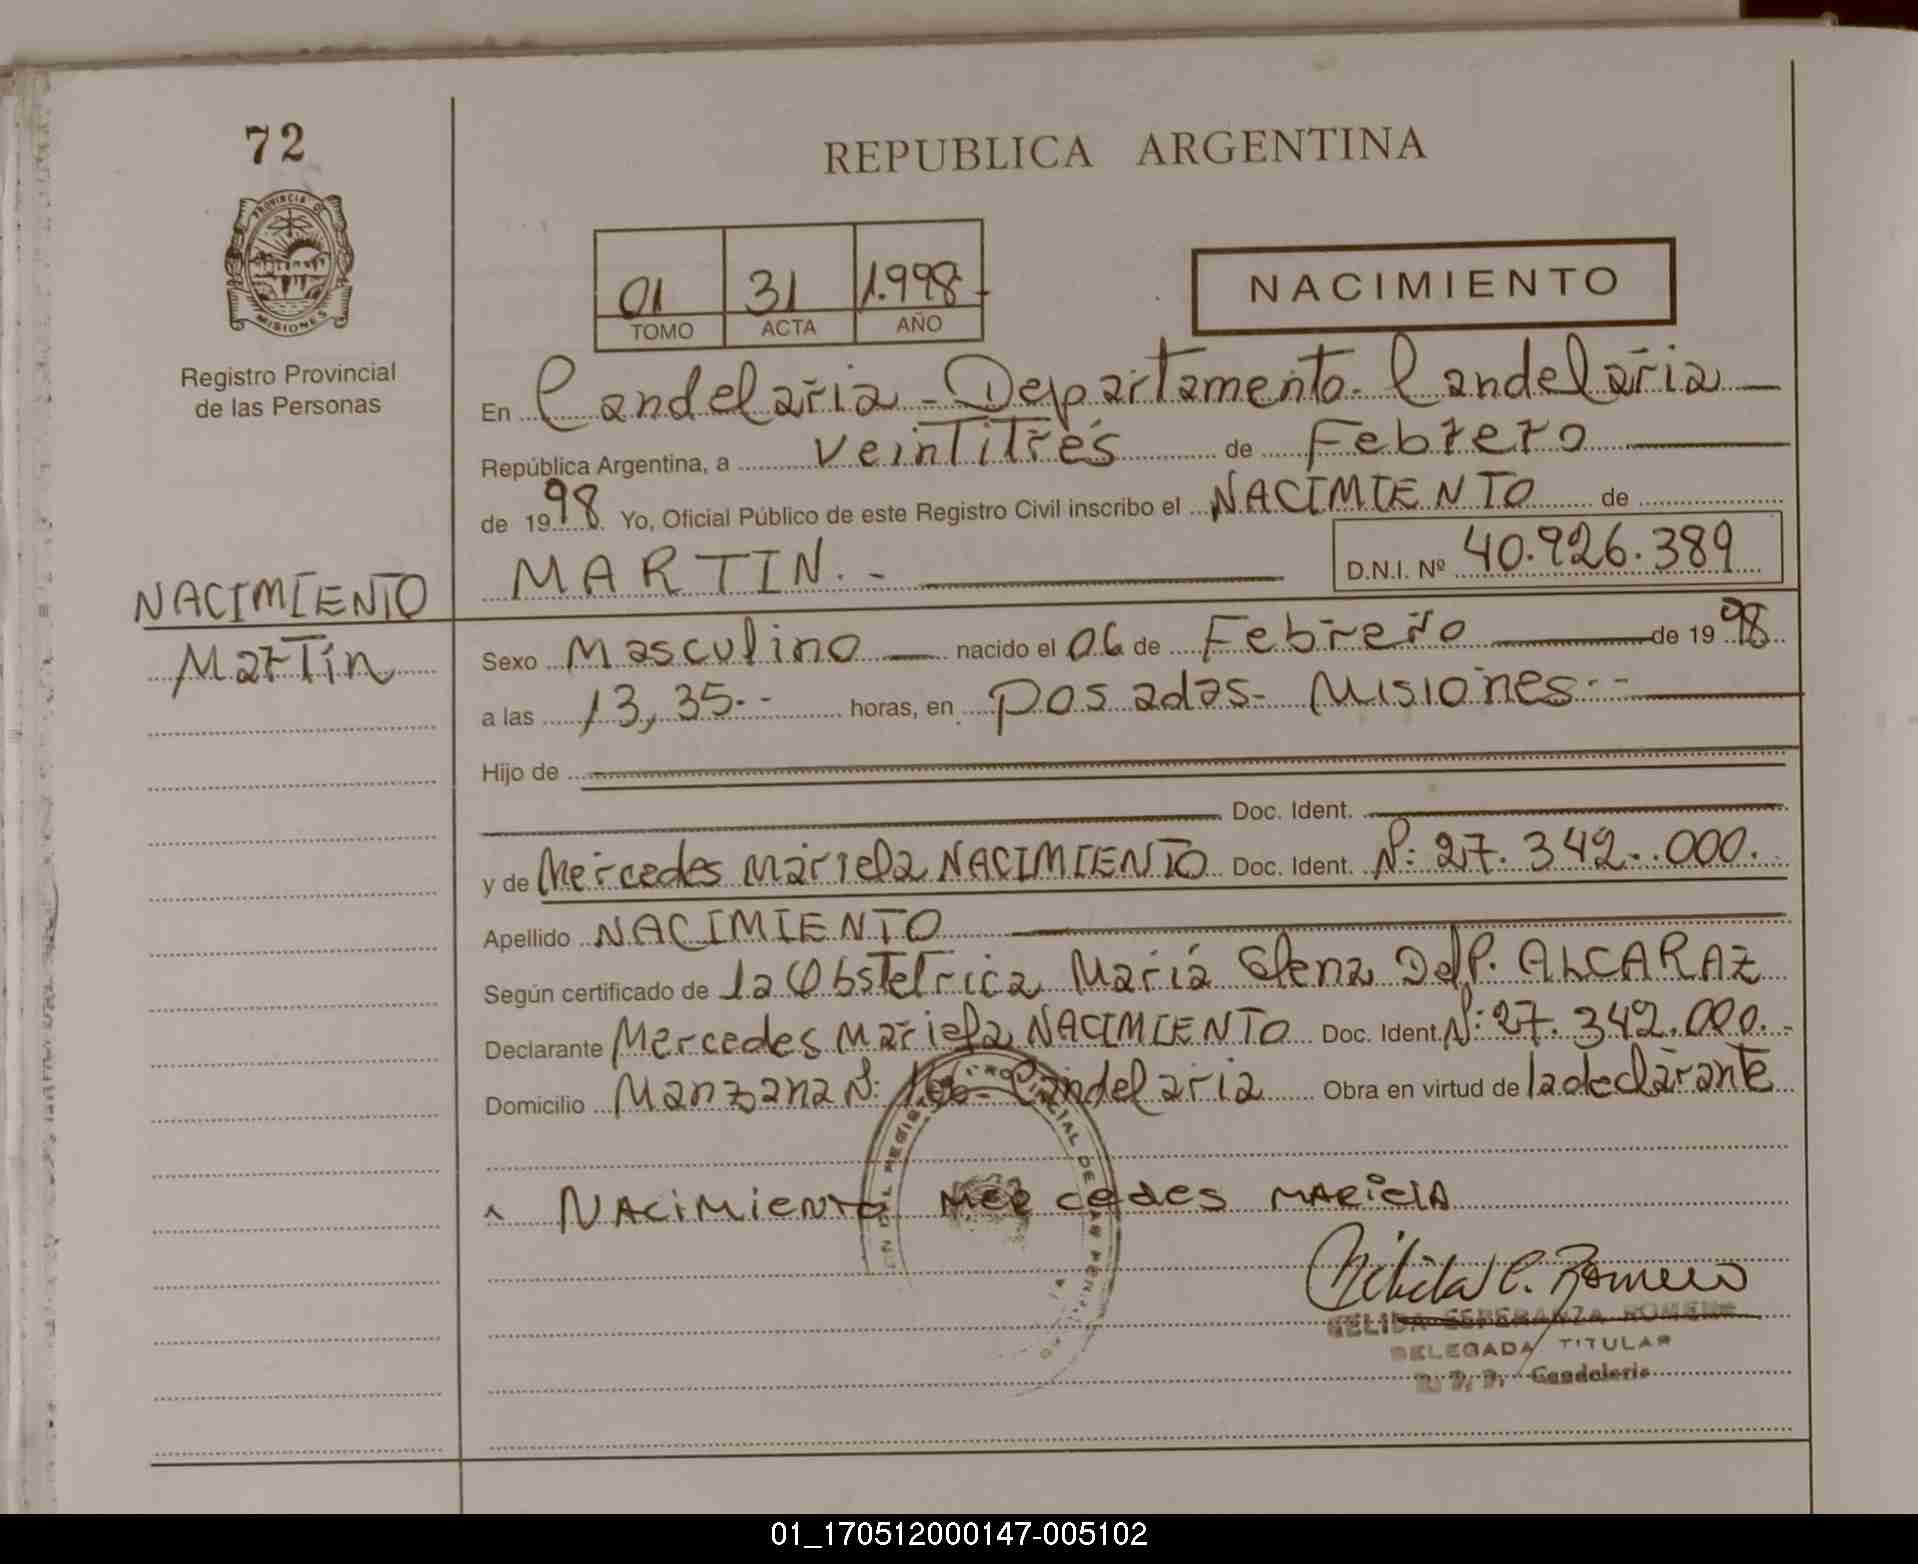 72
PROVINCIA DE
MISIONES
Registro Provincial
de las Personas
NACIMIENTO
Martín
REPUBLICA ARGENTINA
01 31 1.998-
TOMO ACTA AÑO
NACIMIENTO
En Candelaria - Departamento - Candelaria
República Argentina, a veintitrés de Febrero
de 1998. Yo, Oficial Público de este Registro Civil inscribo el NACIMIENTO de
MARTIN. - D.N.I. Nº 40.926.389
Sexo Masculino nacido el 06 de Febrero de 1998
a las 13,35-- horas, en Posadas - Misiones --
Hijo de
Doc. Ident.
y de Mercedes Mariela NACIMIENTO Doc. Ident. Nº: 27.342.000.
Apellido NACIMIENTO
Según certificado de la Obstetrica María Elena Del P. ALCARAZ
Declarante Mercedes Mariela NACIMIENTO Doc. Ident. Nº: 27.342.000.-
Domicilio Manzana Nº: 166- Candelaria Obra en virtud de la declarante
NACIMIENTO MERCEDES MARIELA
PROVINCIAL DE LAS
Nélida E. Romero
NELIDA ESPERANZA ROMERO
DELEGADA TITULAR
Candelaria
01_170512000147-005102